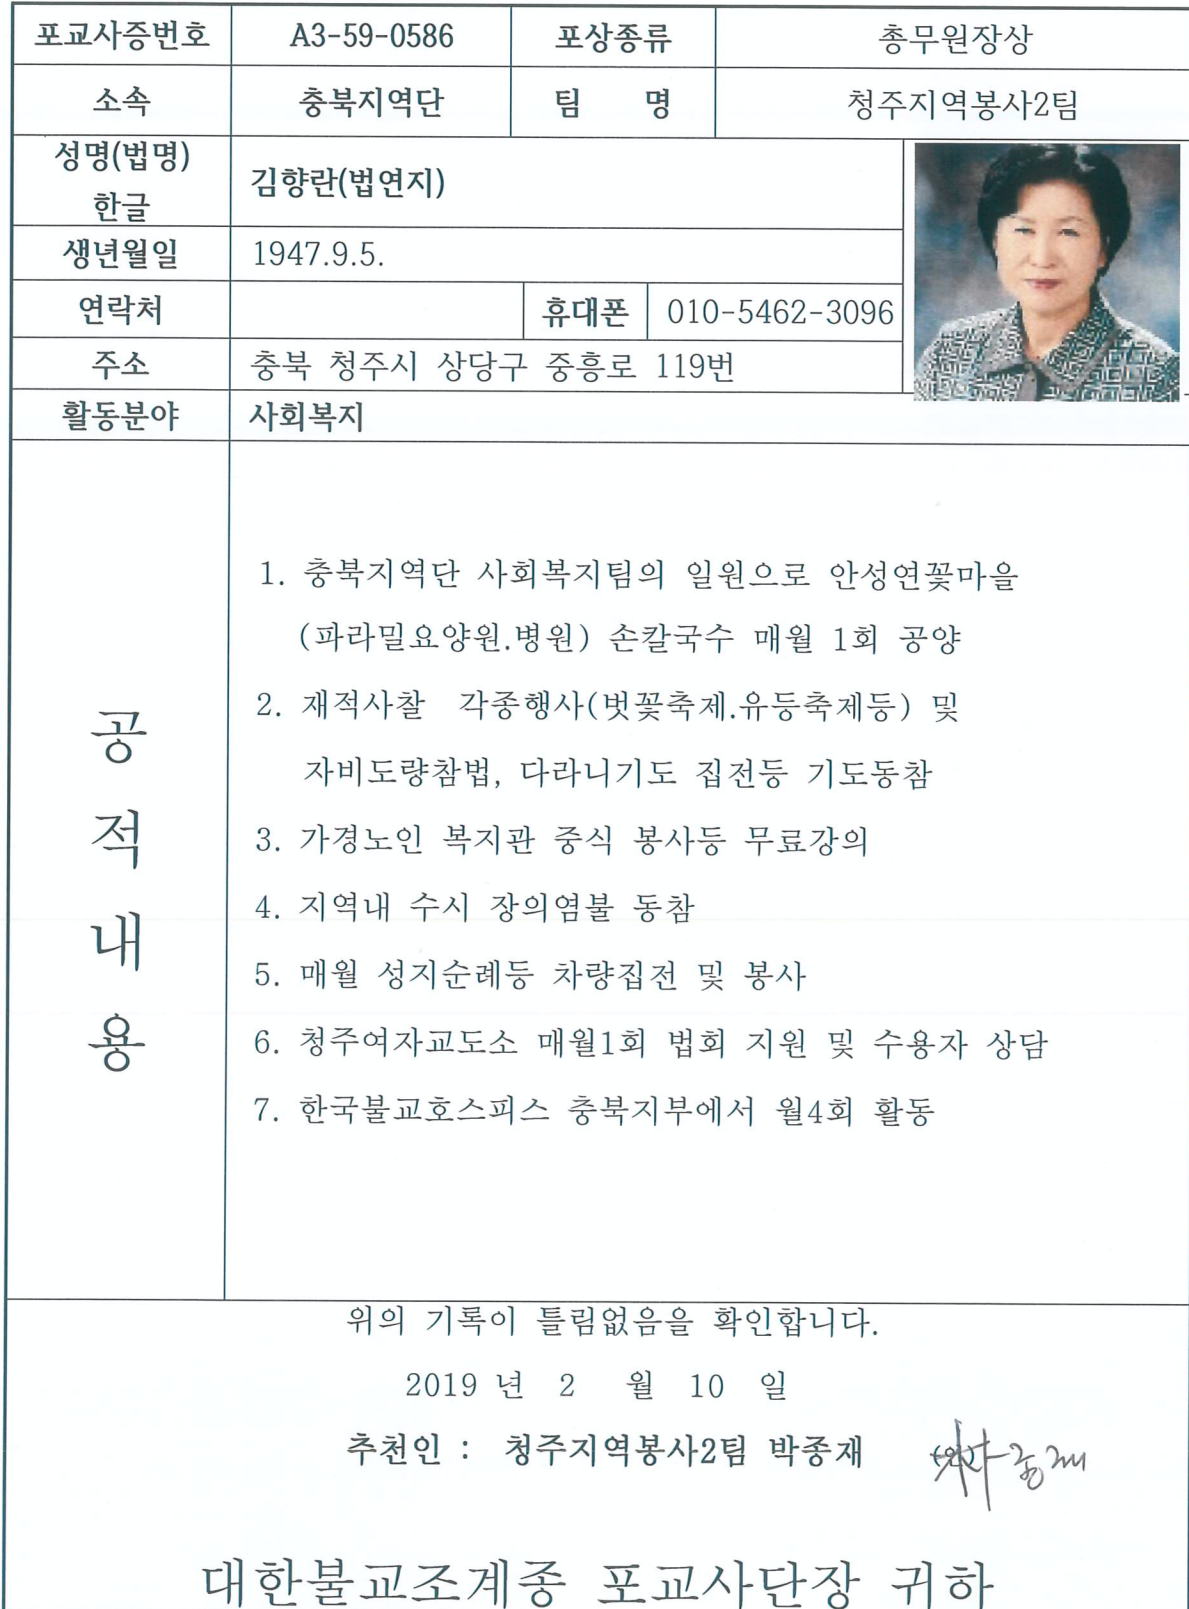 포교사증번호 A3-59-0586 포상종류 총무원장상
소속 충북지역단 팀 명 청주지역봉사2팀
성명(법명)
한글 김향란(법연지)
생년월일 1947.9.5.
연락처 휴대폰 010-5462-3096
주소 충북 청주시 상당구 중흥로 119번
활동분야 사회복지
공적내용
1. 충북지역단 사회복지팀의 일원으로 안성연꽃마을
(파라밀요양원.병원) 손칼국수 매월 1회 공양
2. 재적사찰 각종행사(벗꽃축제.유등축제등) 및
자비도량참법, 다라니기도 집전등 기도동참
3. 가경노인 복지관 중식 봉사등 무료강의
4. 지역내 수시 장의염불 동참
5. 매월 성지순례등 차량집전 및 봉사
6. 청주여자교도소 매월1회 법회 지원 및 수용자 상담
7. 한국불교호스피스 충북지부에서 월4회 활동
위의 기록이 틀림없음을 확인합니다.
2019 년 2 월 10 일
추천인 : 청주지역봉사2팀 박종재 (인) 박종재
대한불교조계종 포교사단장 귀하